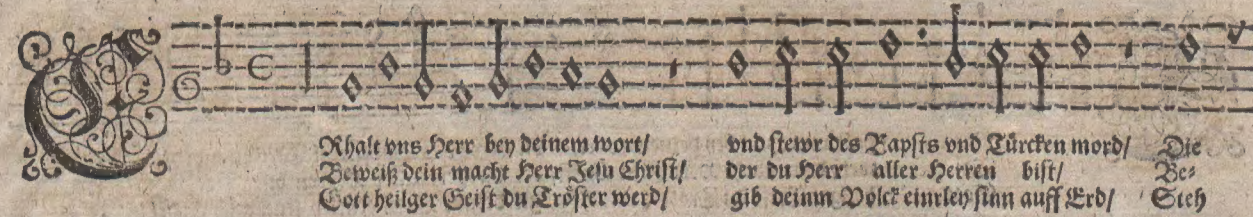 ERhalt vns Herr bey deinem wort/ vnd stewr des Bapsts vnd Türcken mord/ Die
Beweiß dein macht Herr Jesu Christ/ der du Herr aller Herren bist/ Be-
Gott heilger Geist du Tröster werd/ gib deinm Volck einrley sinn auff Erd/ Steh